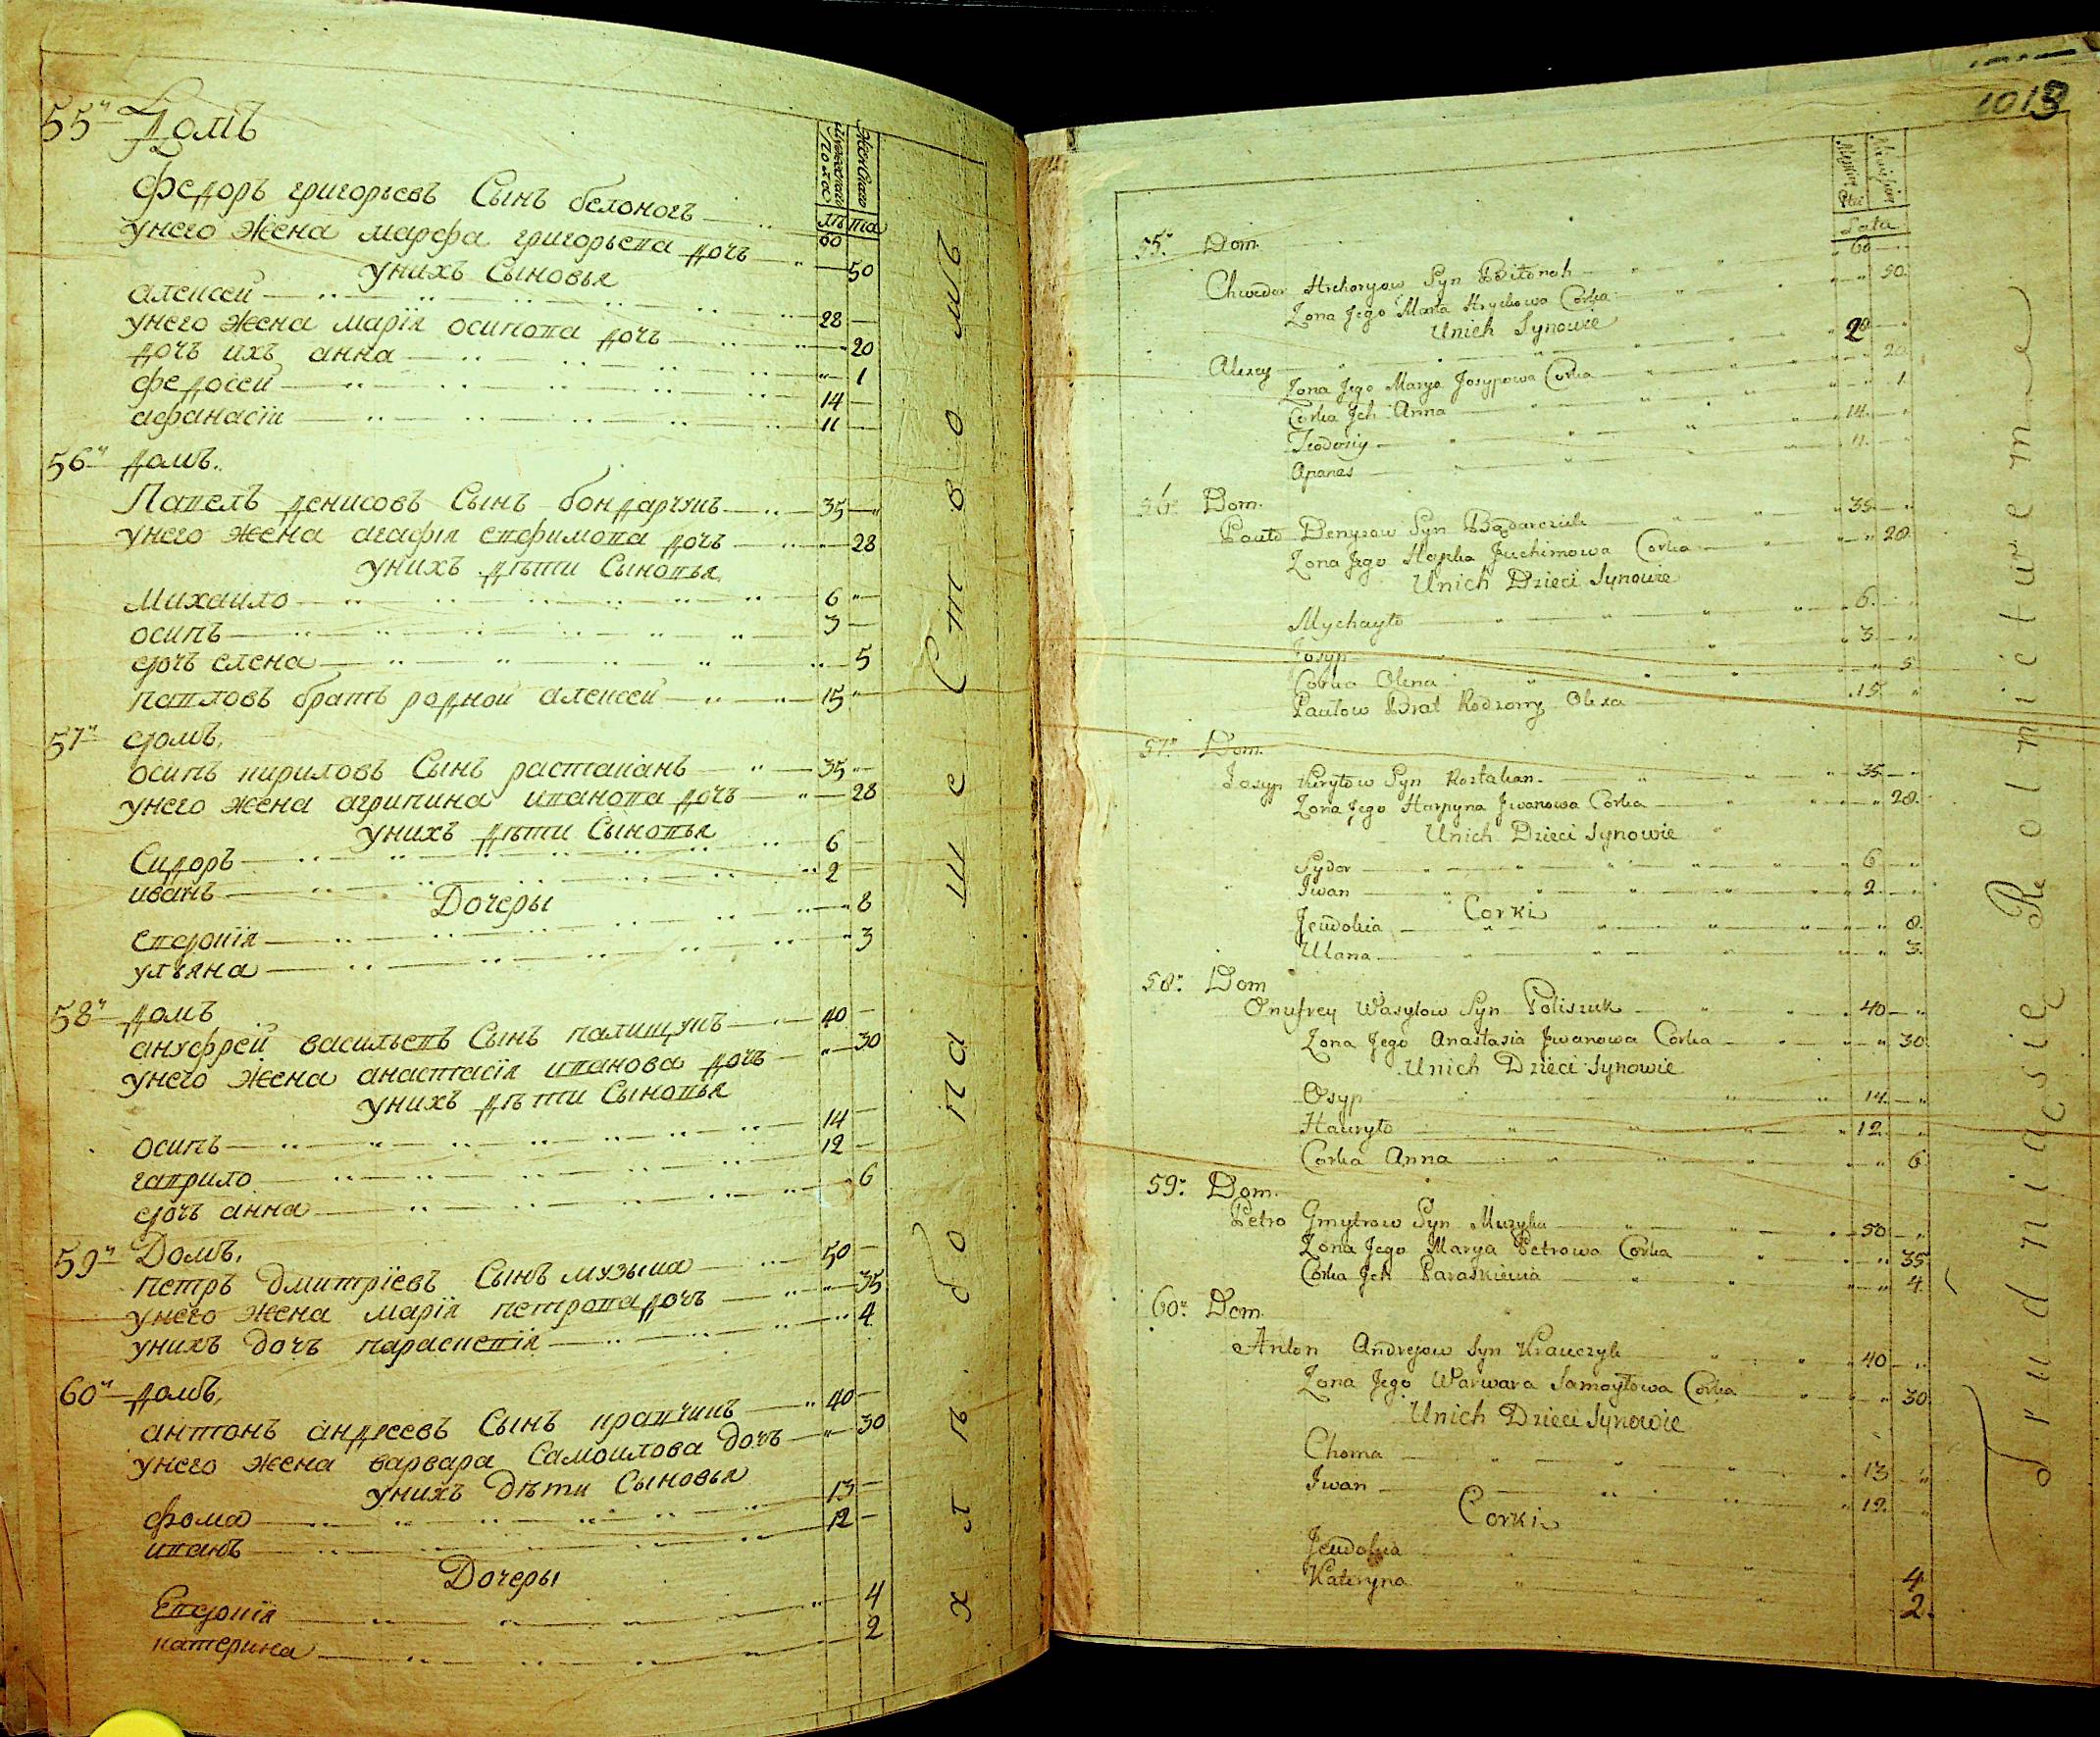 55й Домъ
Мужеска Пола
Женскаго
лѣта
федоръ григорьевъ Сынъ белоногъ 60
унего жена марфа григорьева дочъ 50
унихъ Сыновья
алексей 28
унего жена марїя осипова дочъ 20
дочъ ихъ анна 1
федосей 14
афанасїи 11
56й домъ.
Павелъ денисовъ Сынъ бондарчукъ 35
унего жена агафїя евфимова дочъ 28
унихъ дѣти Сыновья
Михаило 6
осипъ 3
дочъ елена 5
павловъ братъ родной алексей 15
57й домъ.
осипъ кириловъ Сынъ растаканъ 35
унего жена агрипина иванова дочъ 28
унихъ дѣти Сыновья
Сидоръ 6
иванъ 2
Дочеры
евдокїя 8
ульяна 3
58й домъ
ануфрей васильевъ Сынъ палищукъ 40
унего жена анастасїя иванова дочъ 30
унихъ дѣти Сыновья
осипъ 14
гаврило 12
дочъ анна 6
59й Домъ.
петръ дмитрїевъ Сынъ музыка 50
унего жена марїя петрова дочъ 35
унихъ дочъ параскевїя 4
60й домъ.
антонъ андреевъ Сынъ кравчикъ 40
унего жена варвара Самоилова дочъ 30
унихъ дѣти Сыновья
фома 13
иванъ 12
Дочеры
Евдокїя 4
катерина 2
1013
Lata
55. Dom. 60
Chwedor Hrehoryow Syn Biłonoh 50
Zona Jego Marta Hrychowa Corka
Unich Synowie
Alexey 28
Zona Jego Marya Josypowa Corka 20
Corka Jch Anna 1
Teodoziy 14
Opanas 11
56 Dom.
Pawło Denysow Syn Bądarczuk 35
Zona Jego Hapka Juchimowa Corka 28
Unich Dzieci Synowie
Mychayło 6
Josyp 3
Corka Olena 5
Pawłow Brat Rodzony Olexa 15
57 Dom.
Josyp Kiryłow Syn Rostakan 35
Zona Jego Harpyna Jwanowa Corka 28
Unich Dzieci Synowie
Sydor 6
Jwan 2
Corki
Jewdokia 8
Ulana 3
58. Dom
Onufrey Wasylow Syn Poliszuk 40
Zona Jego Anastasia Jwanowa Corka 30
Unich Dzieci Synowie
Osyp 14
Hawryło 12
Corka Anna 6
59. Dom.
Petro Gmytrow Syn Muzyka 50
Zona Jego Marya Petrowa Corka 35
Corka Jch Paraskiewia 4
60. Dom.
Anton Andrejow Syn Krawczyk 40
Zona Jego Warwara Samoyłowa Corka 30
Unich Dzieci Synowie
Choma 13
Jwan 12
Corki
Jewdokia 4
Kateryna 2